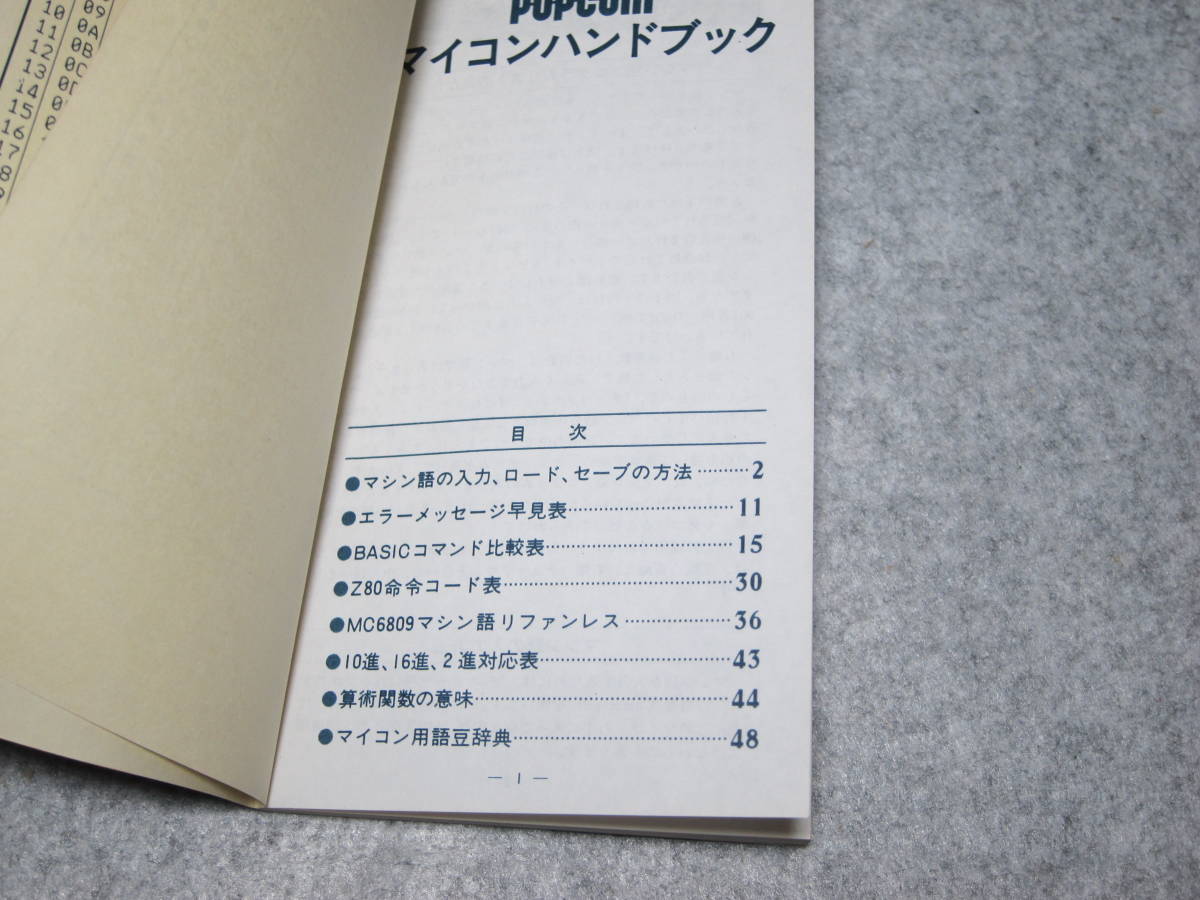 10 09
11 0A
12 0B
13 0C
14 0D
15
16
17
18
POPCOM
マイコンハンドブック
目 次
●マシン語の入力、ロード、セーブの方法………2
●エラーメッセージ早見表………11
●BASICコマンド比較表………15
●Z80命令コード表………30
●MC6809マシン語リファンレス………36
●10進、16進、2進対応表………43
●算術関数の意味………44
●マイコン用語豆辞典………48
— 1 —